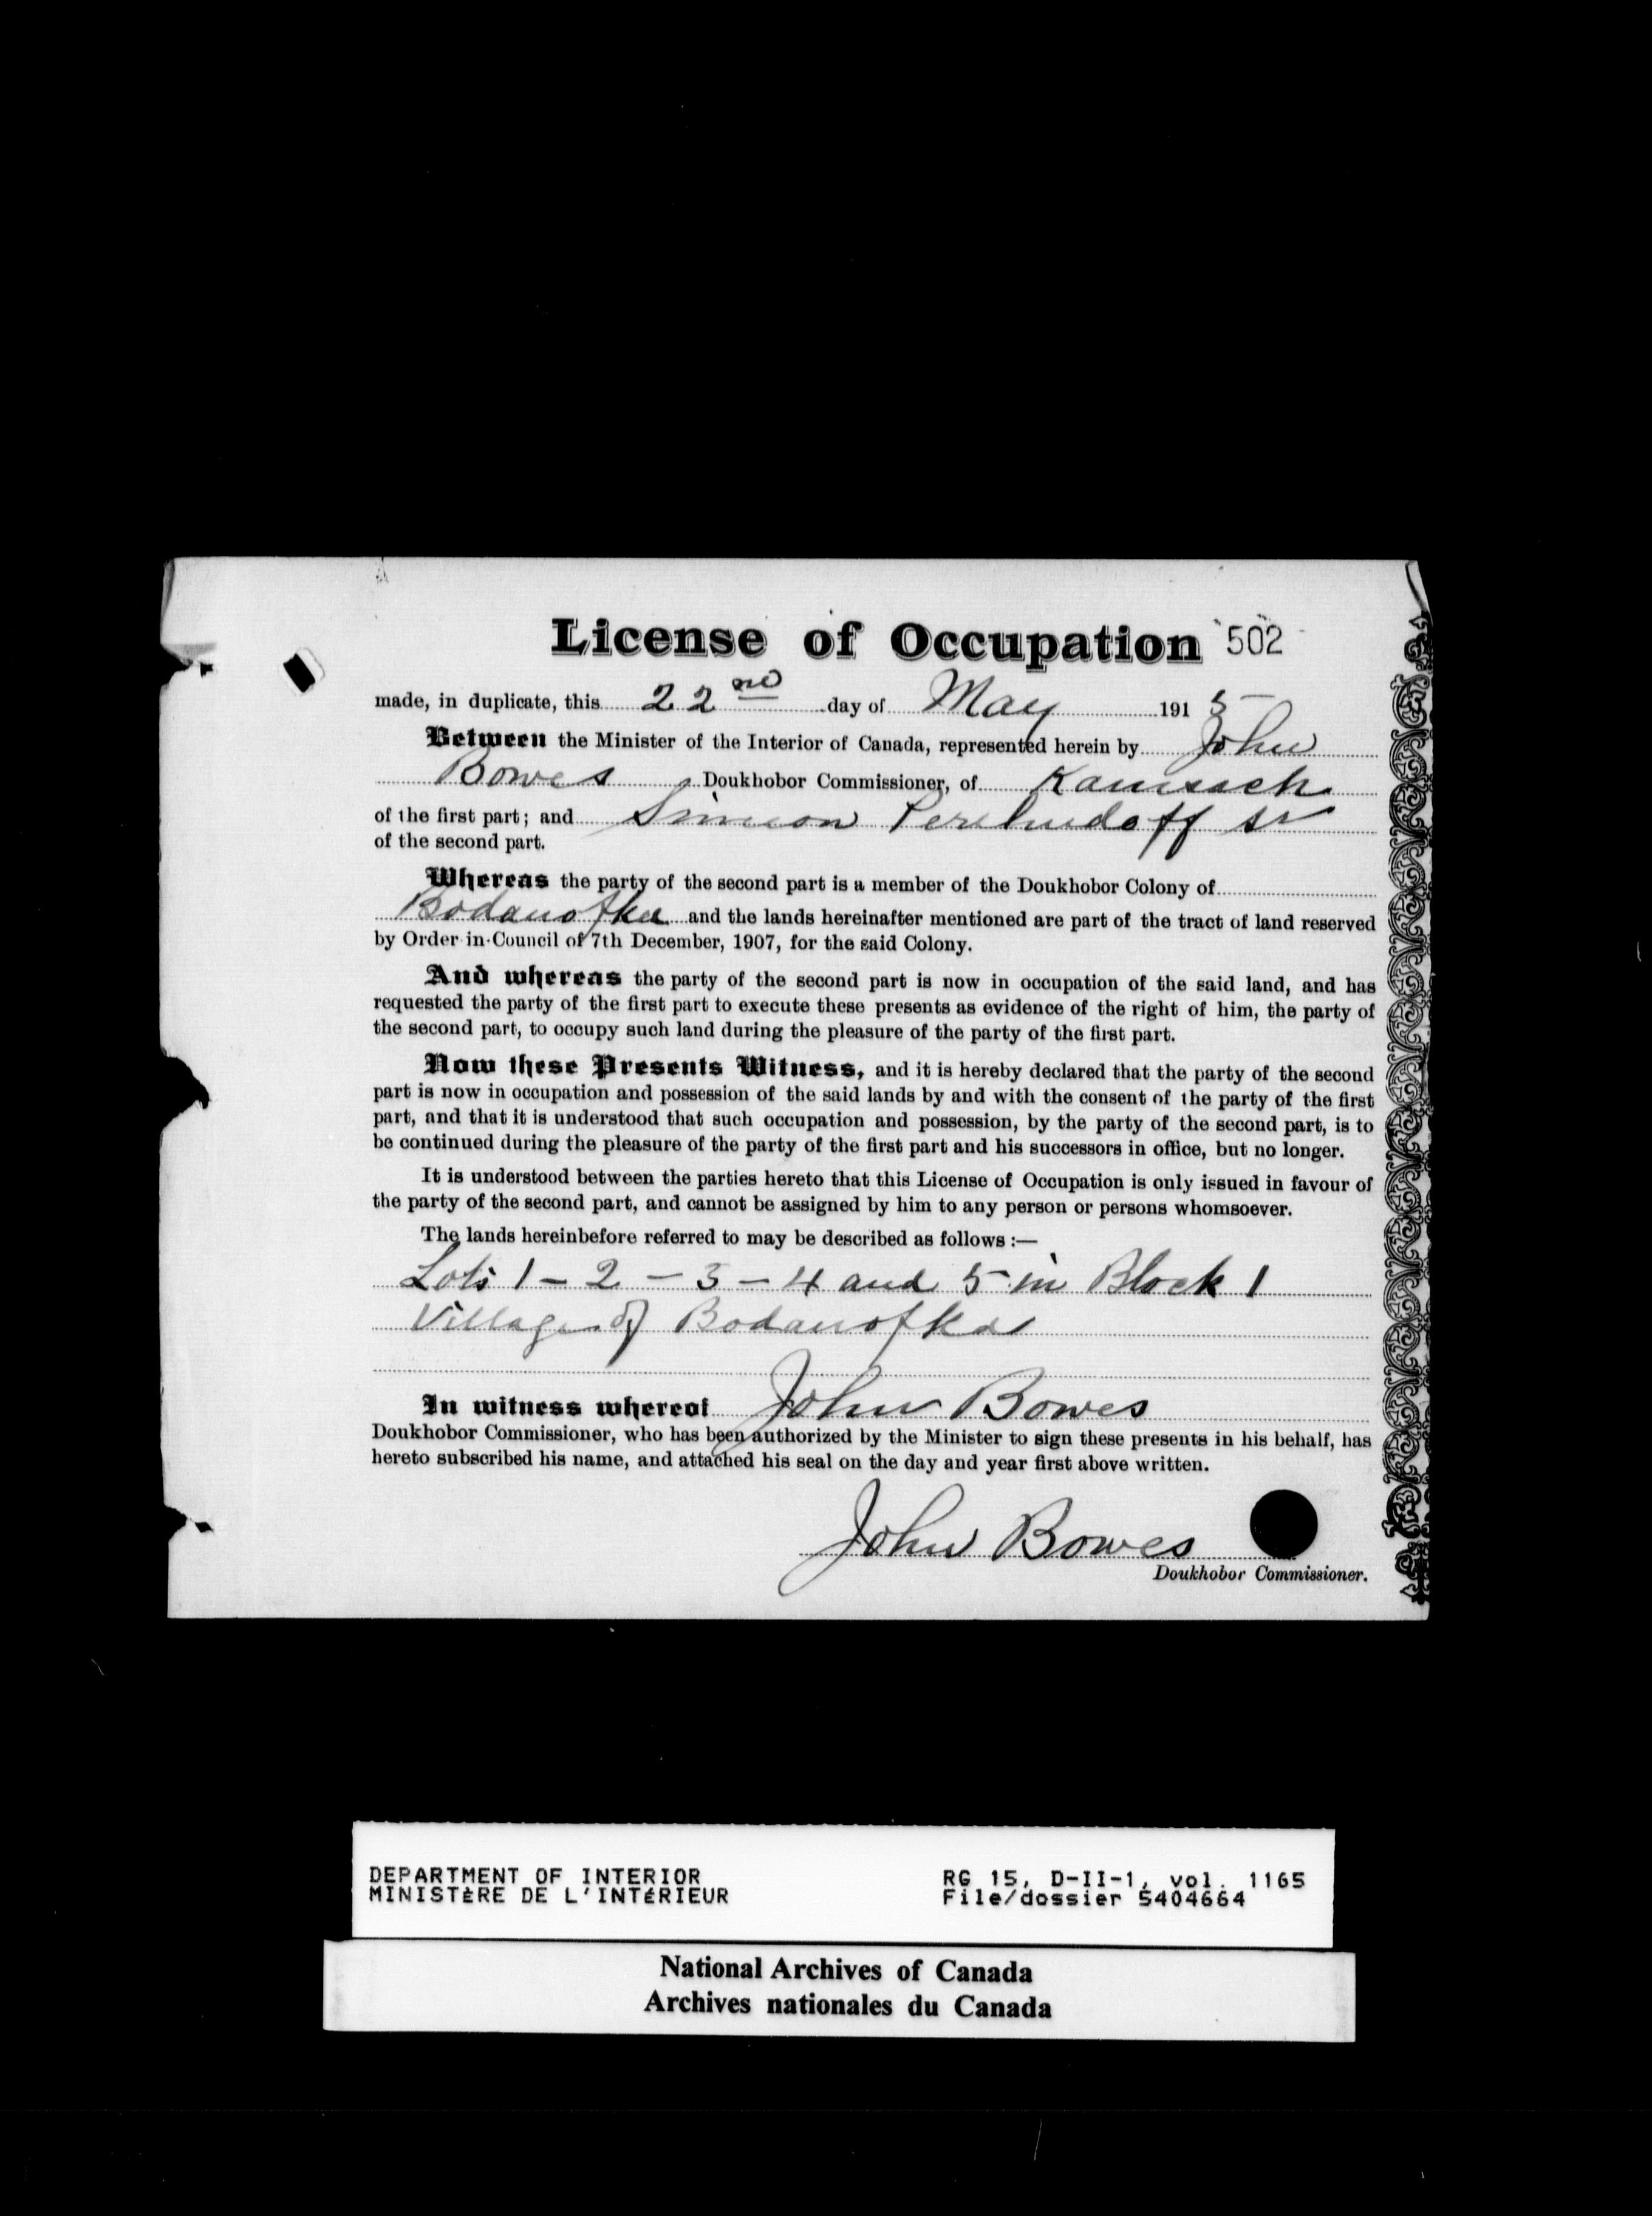 License of Occupation 502
made, in duplicate, this 22nd day of May 1915
Between the Minister of the Interior of Canada, represented herein by John
Bowes Doukhobor Commissioner, of Kamsack
of the first part; and Simeon Perehudoff sr
of the second part.
Whereas the party of the second part is a member of the Doukhobor Colony of
Bodanofka and the lands hereinafter mentioned are part of the tract of land reserved
by Order-in-Council of 7th December, 1907, for the said Colony.
And whereas the party of the second part is now in occupation of the said land, and has
requested the party of the first part to execute these presents as evidence of the right of him, the party of
the second part, to occupy such land during the pleasure of the party of the first part.
Now these Presents Witness, and it is hereby declared that the party of the second
part is now in occupation and possession of the said lands by and with the consent of the party of the first
part, and that it is understood that such occupation and possession, by the party of the second part, is to
be continued during the pleasure of the party of the first part and his successors in office, but no longer.
It is understood between the parties hereto that this License of Occupation is only issued in favour of
the party of the second part, and cannot be assigned by him to any person or persons whomsoever.
The lands hereinbefore referred to may be described as follows :—
Lots 1 - 2 - 3 - 4 and 5 in Block 1
Village of Bodanofka
In witness whereof John Bowes
Doukhobor Commissioner, who has been authorized by the Minister to sign these presents in his behalf, has
hereto subscribed his name, and attached his seal on the day and year first above written.
John Bowes
Doukhobor Commissioner.
DEPARTMENT OF INTERIOR RG 15, D-II-1, vol. 1165
MINISTÈRE DE L'INTÉRIEUR File/dossier 5404664
National Archives of Canada
Archives nationales du Canada